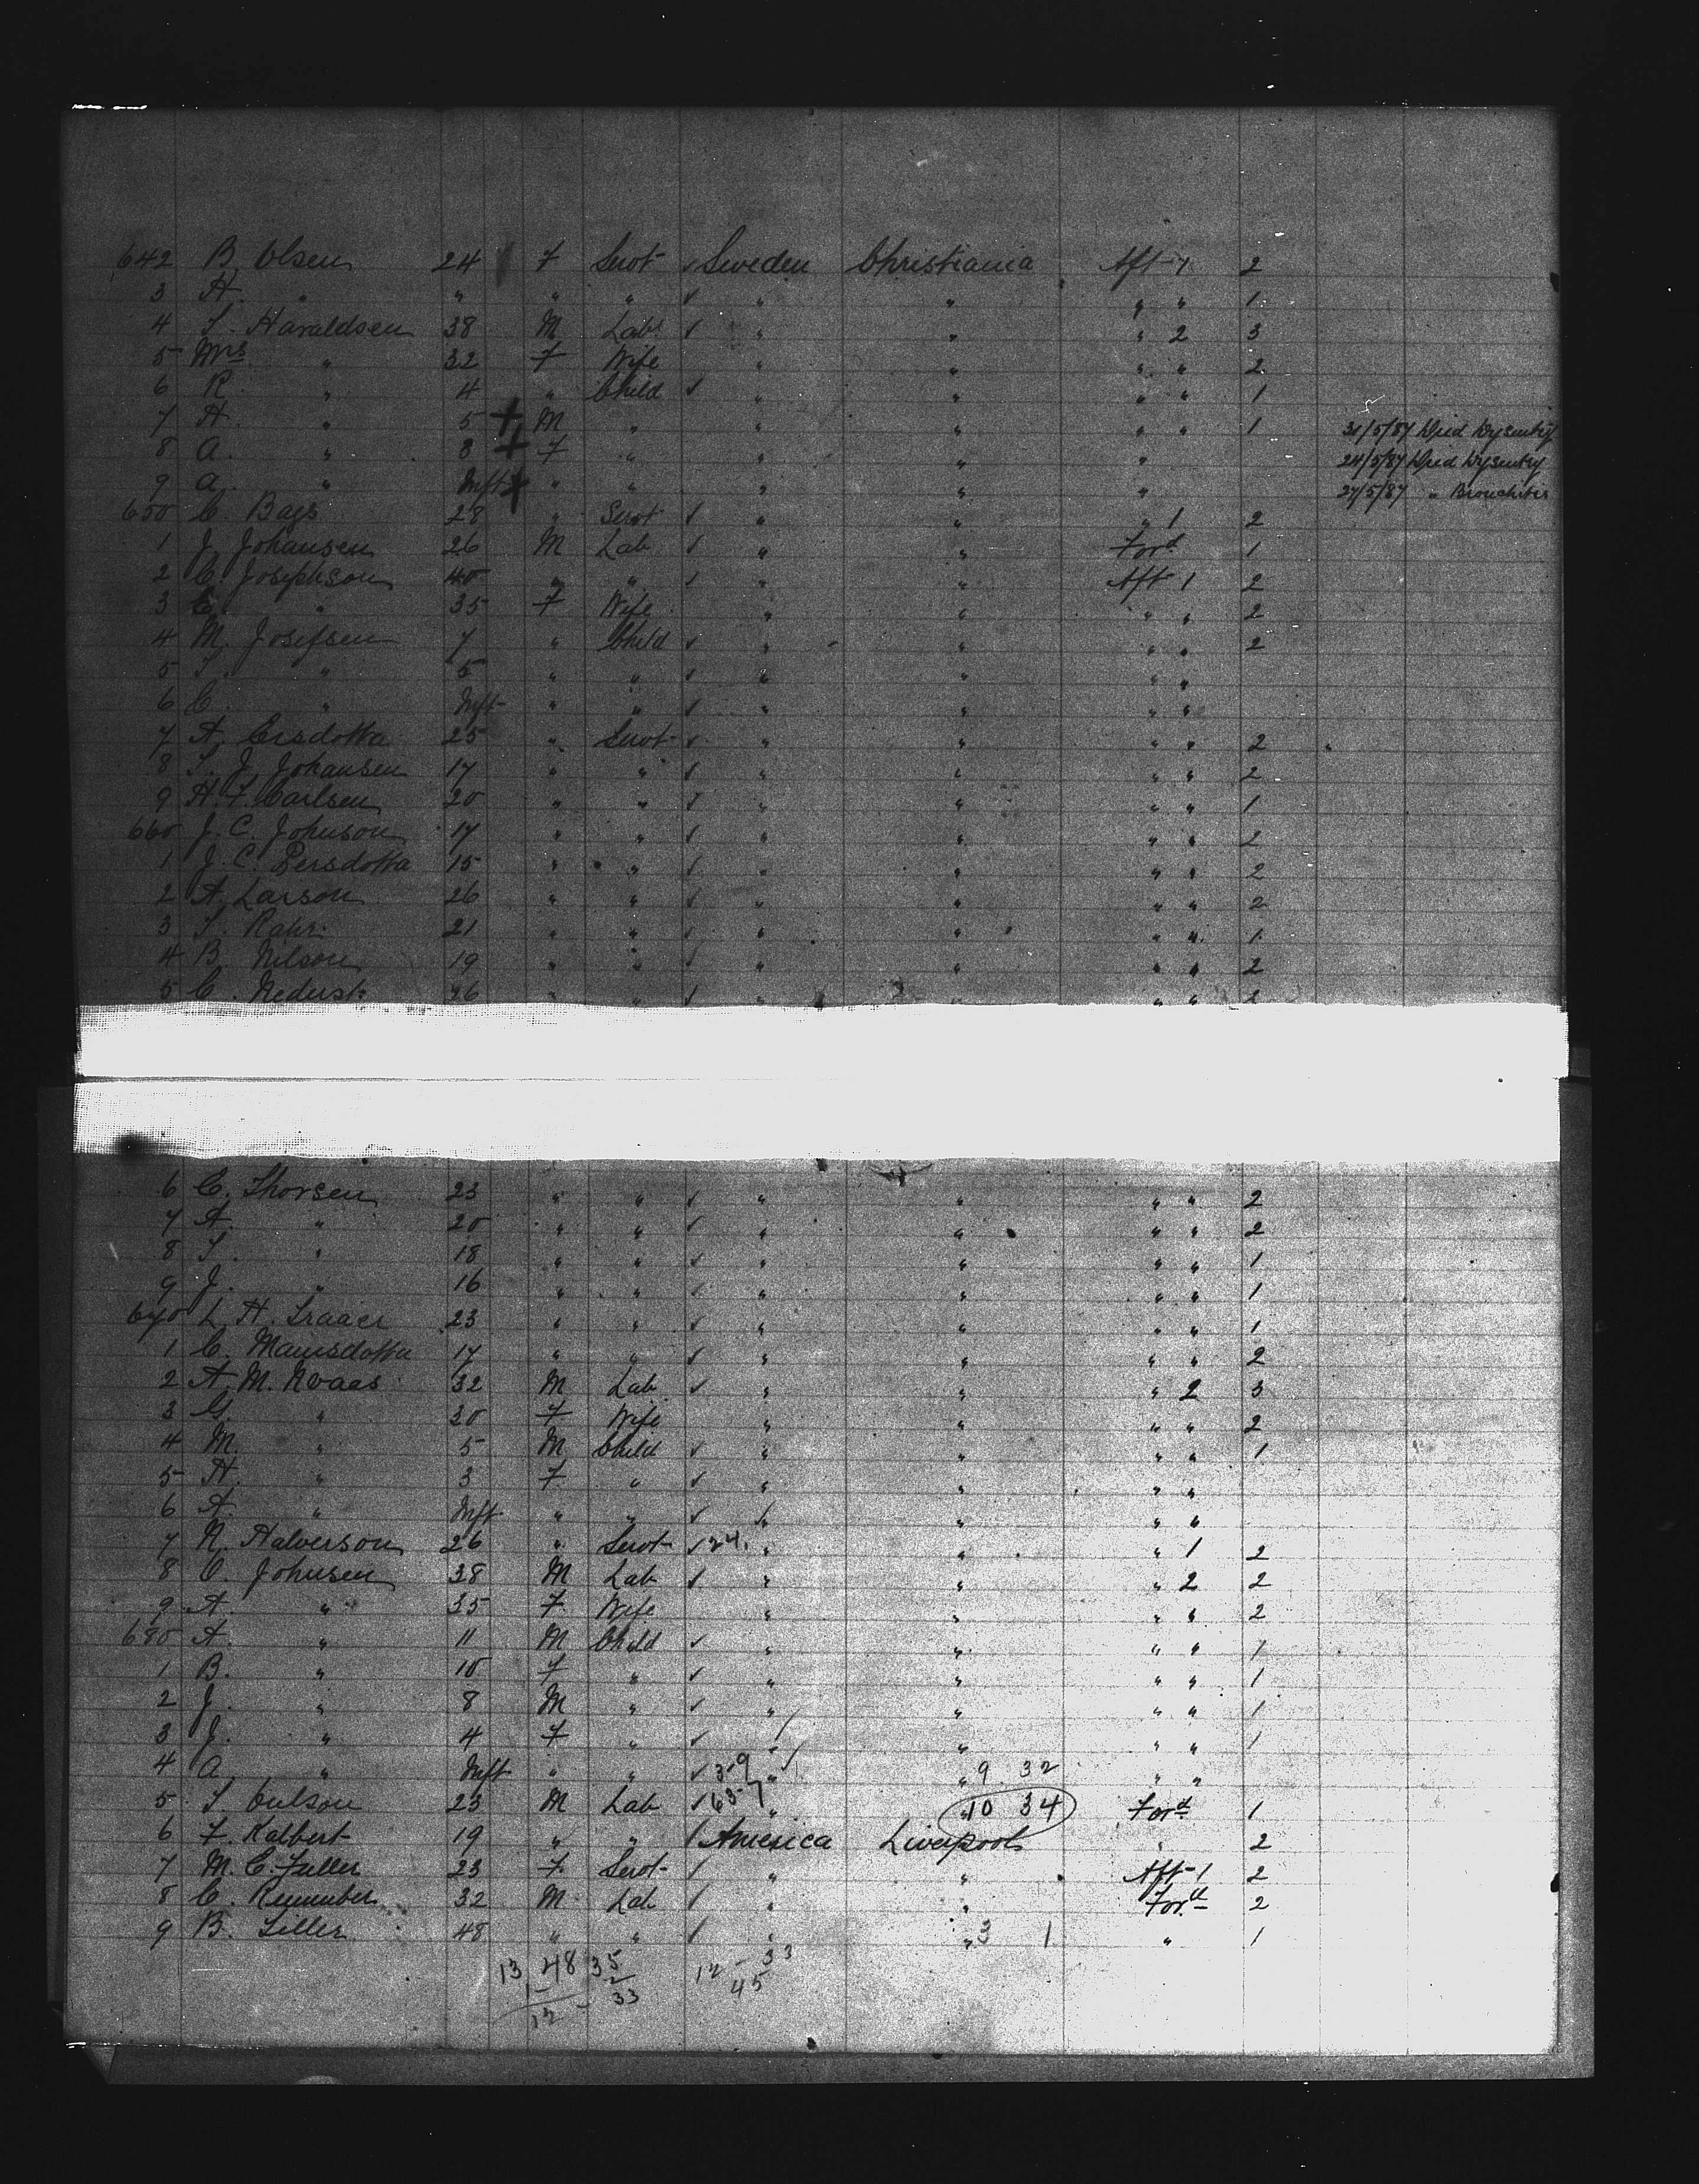 642 B. Olsen 24 F Servt ✓ Sweden Christiania Aft 1 2
3 H. " " " " ✓ " " " " 1
4 S. Haraldsen 38 M Labr ✓ " " " 2 3
5 Mrs " 32 F Wife " " " " 2
6 R. " 4 " Child ✓ " " " " 1
7 H. " 5 + M " " " " " 1 31/5/87 Died Dysentry
8 A. " 8 + F " " " " 24/5/87 Died Dysentry
9 A. " Inft + " " " " " 27/5/87 " Bronchitis
650 C. Bags 28 " Servt ✓ " " " 1 2
1 J. Johansen 26 M Lab ✓ " " Ford 1
2 C. Josephson 40 " " ✓ " " Aft 1 2
3 C. " 35 F Wife " " " " 2
4 M. Josefsen 7 " Child ✓ " " " " 2
5 S. " 5 " " ✓ " " " "
6 C. " Inft " " ✓ " " " "
7 A. Ersdotta 25 " Servt ✓ " " " " 2
8 S. J. Johansen 17 " " ✓ " " " " 2
9 H. F. Carlsen 20 " " ✓ " " " " 1
660 J. C. Johnson 17 " " ✓ " " " " 2
1 J. C. Persdotta 15 " " ✓ " " " " 2
2 A. Larson 26 " " ✓ " " " " 2
3 S. Rahr 21 " " ✓ " " " " 1
4 B. Nilson 19 " " ✓ " " " " 2
5 C. 26 " " ✓ " " " "
6 C. Thorsen 23 " " ✓ " " " " 2
7 A. " 20 " " ✓ " " " " 2
8 S. " 18 " " ✓ " " " " 1
9 J. " 16 " " ✓ " " " " 1
670 L. H. 23 " " ✓ " " " " 1
1 C. Mansdotta 17 " " ✓ " " " " 2
2 A. M. Noaas 32 M Lab ✓ " " " 2 3
3 G. " 30 F Wife " " " " 2
4 M. " 5 M Child ✓ " " " " 1
5 H. " 3 F " ✓ " " " "
6 A. " Inft " " ✓ " " " "
7 N. Halverson 26 " Servt ✓ 24 " " " 1 2
8 O. Johnsen 38 M Lab ✓ " " " 2 2
9 A. " 35 F Wife " " " " 2
680 A. " 11 M Child ✓ " " " " 1
1 B. " 10 F " ✓ " " " " 1
2 J. " 8 M " ✓ " " " " 1
3 J. " 4 F " ✓ " " " " 1
4 A. " Inft " " ✓ " " 9 32 " "
5 S. 23 M Lab ✓ " " 10 34 Ford 1
6 F. Kalbert 19 " " / America Liverpool " 2
7 M. C. Fuller 23 F Servt / " " Aft 1 2
8 C. 32 M Lab / " " Ford 2
9 B. Siller 48 " " / " " 3 1 " 1
13 48 35 12 - 33
1 - 2 45
12 - 33